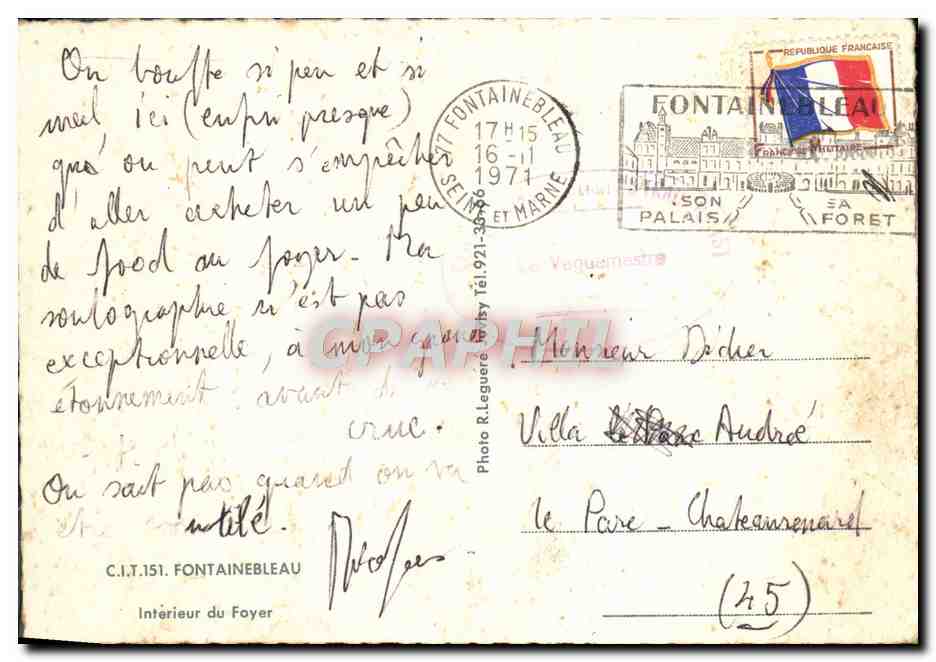 On bouffe si peu et si
mal, ici (enfin presque)
qu'on peut s'empêcher
d'aller acheter un peu
de food au foyer - Ma
soulographie n'est pas
exceptionnelle, à mon grand
étonnement : avant
crue.
On sait pas quand on va
et
C.I.T.151. FONTAINEBLEAU
Intérieur du Foyer
Photo R.Leguère Juvisy Tél.921-33-66
77 FONTAINEBLEAU
17H15
16-11
1971
SEINE ET MARNE
REPUBLIQUE FRANCAISE
FRANCHISE MILITAIRE
FONTAINEBLEAU
SON PALAIS
SA FORET
Le Vaguemestre
CPARPHIL
Monsieur Didier
Villa André
le Parc - Chateaurenard
(45)